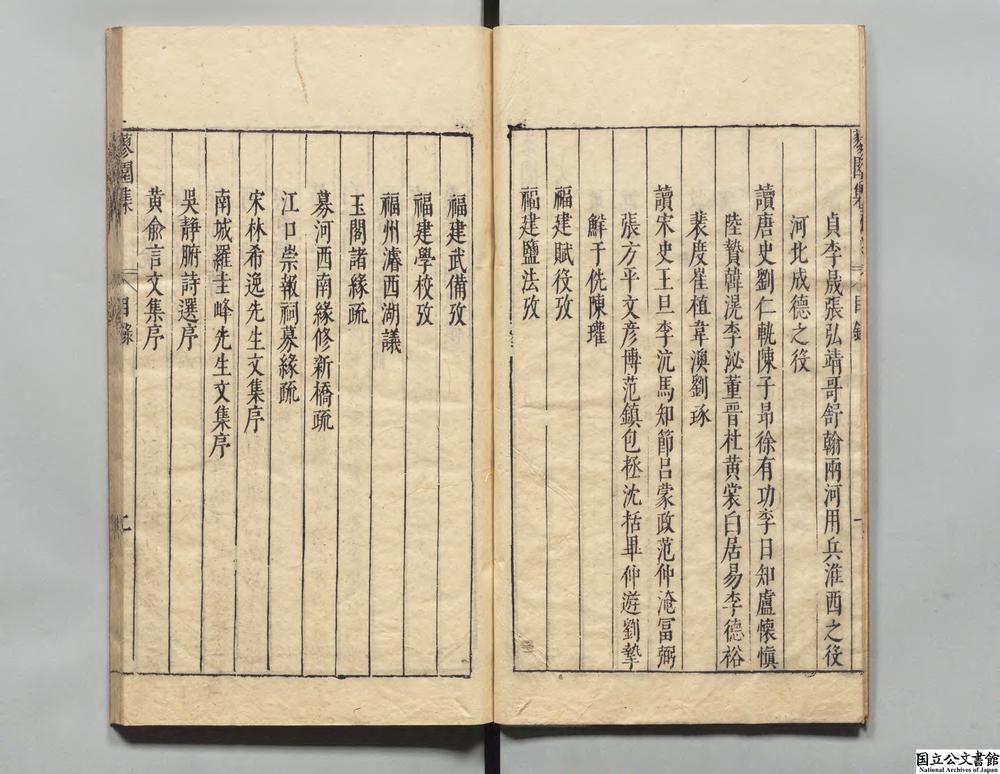 貞李晟張弘靖哥舒翰兩河用兵淮西之役
河北成德之役
讀唐史劉仁軌陳子昻徐有功李日知盧懷慎
陸贄韓滉李泌董晋杜黄裳白居易李德裕
裴度崔植韋澳劉琢
讀宋史王旦李沆馬知節吕蒙政范仲淹富弼
張方平文彦博范鎮包拯沈括畢仲遊劉摯
鮮于侁陳瓘
福建賦役攷
福建鹽法攷
目錄
福建武備攷
福建學校攷
福州濬西湖議
玉閣諸緣疏
募河西南緣修新橋疏
江口崇報祠募緣疏
宋林希逸先生文集序
南城羅圭峰先生文集序
吳靜腑詩選序
黄兪言文集序
集
目錄
二
国立公文書館
National Archives of Japan